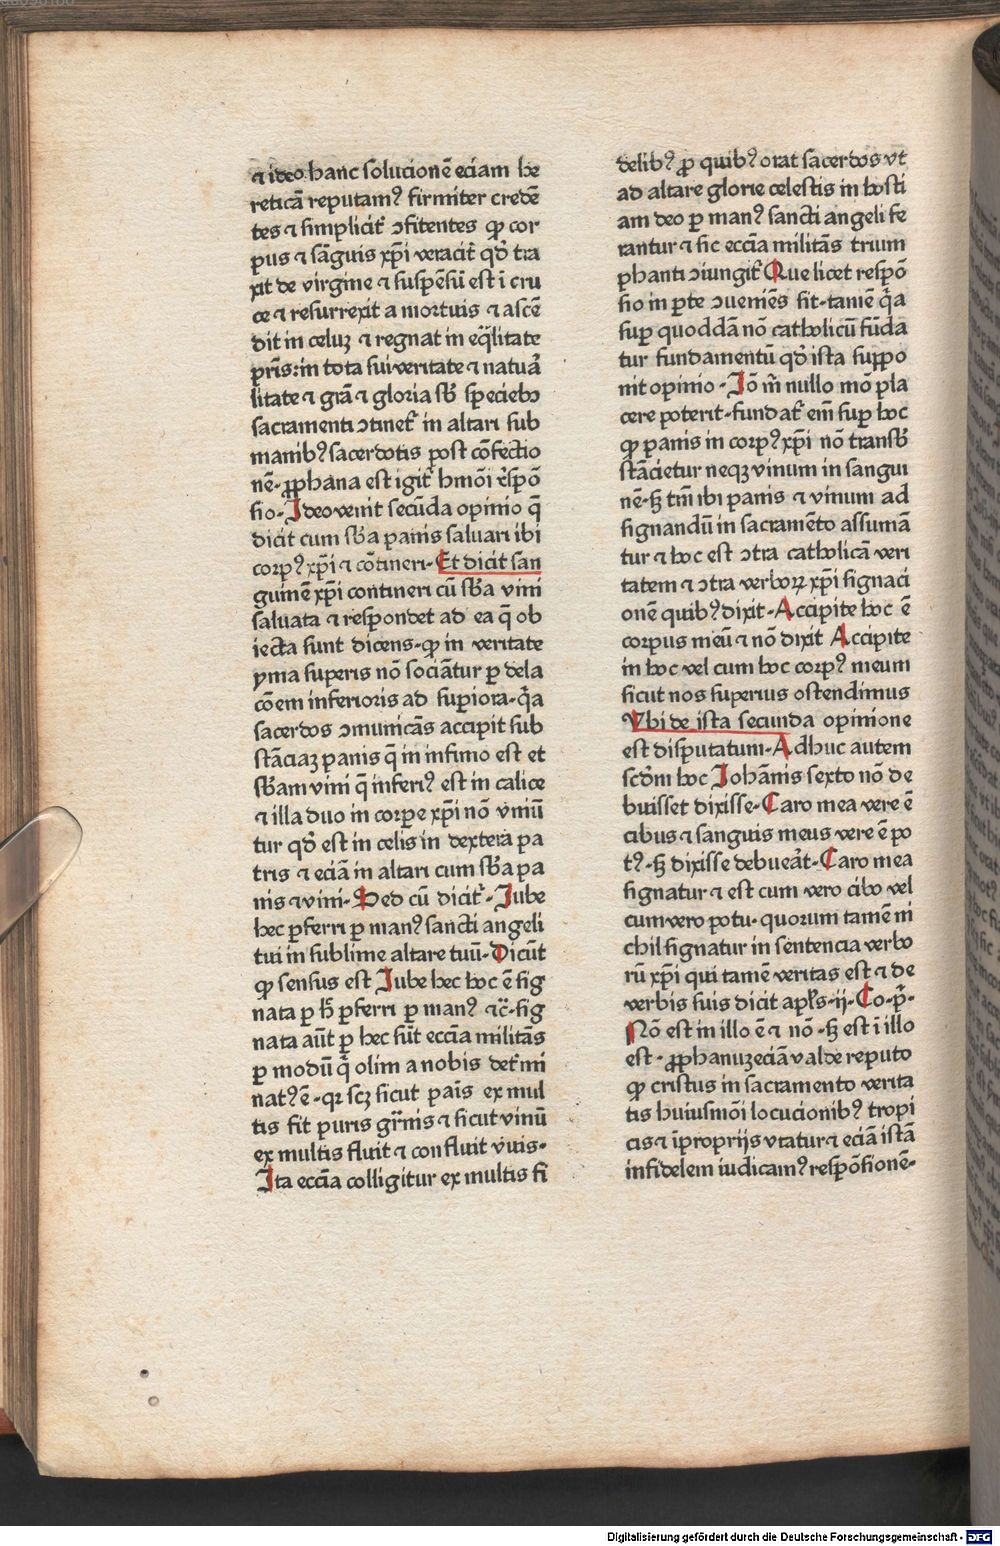 ⁊ ideo hanc solucionē eciam he
reticā reputamꝰ firmiter credē
tes ⁊ simplicit᷑ ꝯfitentes ꝙ cor
pus ⁊ sāguis xp̄i veracit᷑ qd̓ tra
xit de virgine ⁊ suspēsū est ī cru
ce ⁊ resurrexit a mortuis ⁊ ascē
dit in celuꝫ ⁊ regnat in eq̄litate
pr̄is: in tota sui veritate ⁊ natua᷑
litate ⁊ gr̄a ⁊ gloria sb̓ speciebꝰ
sacramenti ꝯtinet᷑ in altari sub
manibꝰ sacerdotis post cōfectio
nē. ꝓphana est igit᷑ hmōi r̄spō
sio. Ideo venit secūda opinio q̄
dicit cum sb̓a panis saluari ibi
corpꝰ xp̄i ⁊ cōtineri. Et dicit san
guinē xp̄i contineri cū sb̓a vini
saluata ⁊ respondet ad ea q̄ ob
iecta sunt dicens. ꝙ in veritate
yma superis nō sociātur ꝑ dela
cōem inferioris ad suꝑiora. q̄a
sacerdos ꝯmunicās accipit sub
stāciaꝫ panis q̄ in infimo est et
sb̓am vini q̄ inferiꝰ est in calice
⁊ illa duo in corpe xp̄i nō vniū
tur qd̓ est in celis in dextera pa
tris ⁊ eciā in altari cum sb̓a pa
nis ⁊ vini. Sed cū dicit᷑. Jube
hec ꝑferri ꝑ manꝰ sancti angeli
tui in sublime altare tuū. Dicūt
ꝙ sensus est Jube hec hoc ē sig
nata ꝑ h̓ ꝑferri ꝑ manꝰ ⁊c̄. sig
nata aūt ꝑ hec sūt eccīa militās
ꝑ modū q̄ olim a nobis det᷑mi
natꝰ ē. qꝛ scꝫ sicut pais̄ ex mul
tis fit puris gr̄nis ⁊ sicut vinū
ex multis fluit ⁊ confluit vuis.
Ita eccīa colligitur ex multis fi
delibꝰ ꝓ quibꝰ orat sacerdos vt
ad altare glorie celestis in hosti
am deo ꝑ manꝰ sancti angeli fe
rantur ⁊ sic eccīa militās trium
phanti ꝯiungit᷑ Que licet respō
sio in ꝑte ꝯueniēs sit. tamē q̄a
suꝑ quoddā nō catholicū fūda
tur fundamentū qd̓ ista suppo
nit opinio. Iō m̄ nullo mō pla
cere poterit. fundat᷑ em̄ suꝑ hoc
ꝙ panis in corpꝰ xp̄i nō transb̓
stācietur neqꝫ vinum in sangui
nē. sꝫ tm̄ ibi panis ⁊ vinum ad
signandū in sacramēto assumā
tur ⁊ hoc est ꝯtra catholicā veri
tatem ⁊ ꝯtra verboꝝ xp̄i signaci
onē quibꝰ dixit. Accipite hoc ē
corpus meū ⁊ nō dixit Accipite
in hoc vel cum hoc corpꝰ meum
sicut nos superius ostendimus
Vbi de ista secunda opinione
est disputatum. Adhuc autem
scd̓m hoc Johānis sexto nō de
buisset dixisse. Caro mea vere ē
cibus ⁊ sanguis meus vere ē po
tꝰ. sꝫ dixisse debuea᷑t. Caro mea
signatur ⁊ est cum vero cibo vel
cum vero potu. quorum tamē ni
chil signatur in sentencia verbo
rū xp̄i qui tamē veritas est ⁊ de
verbis suis dicit apl̓s. ij. Co. p̄.
Nō est in illo ē ⁊ nō. sꝫ est ī illo
est. ꝓphanuꝫ eciā valde reputo
ꝙ cristus in sacramento verita
tis huiusmōi locucionibꝰ tropi
cis ⁊ īproprijs vtatur ⁊ eciā istā
infidelem iudicamꝰ respōsionē.
Digitalisierung gefördert durch die Deutsche Forschungsgemeinschaft - DFG